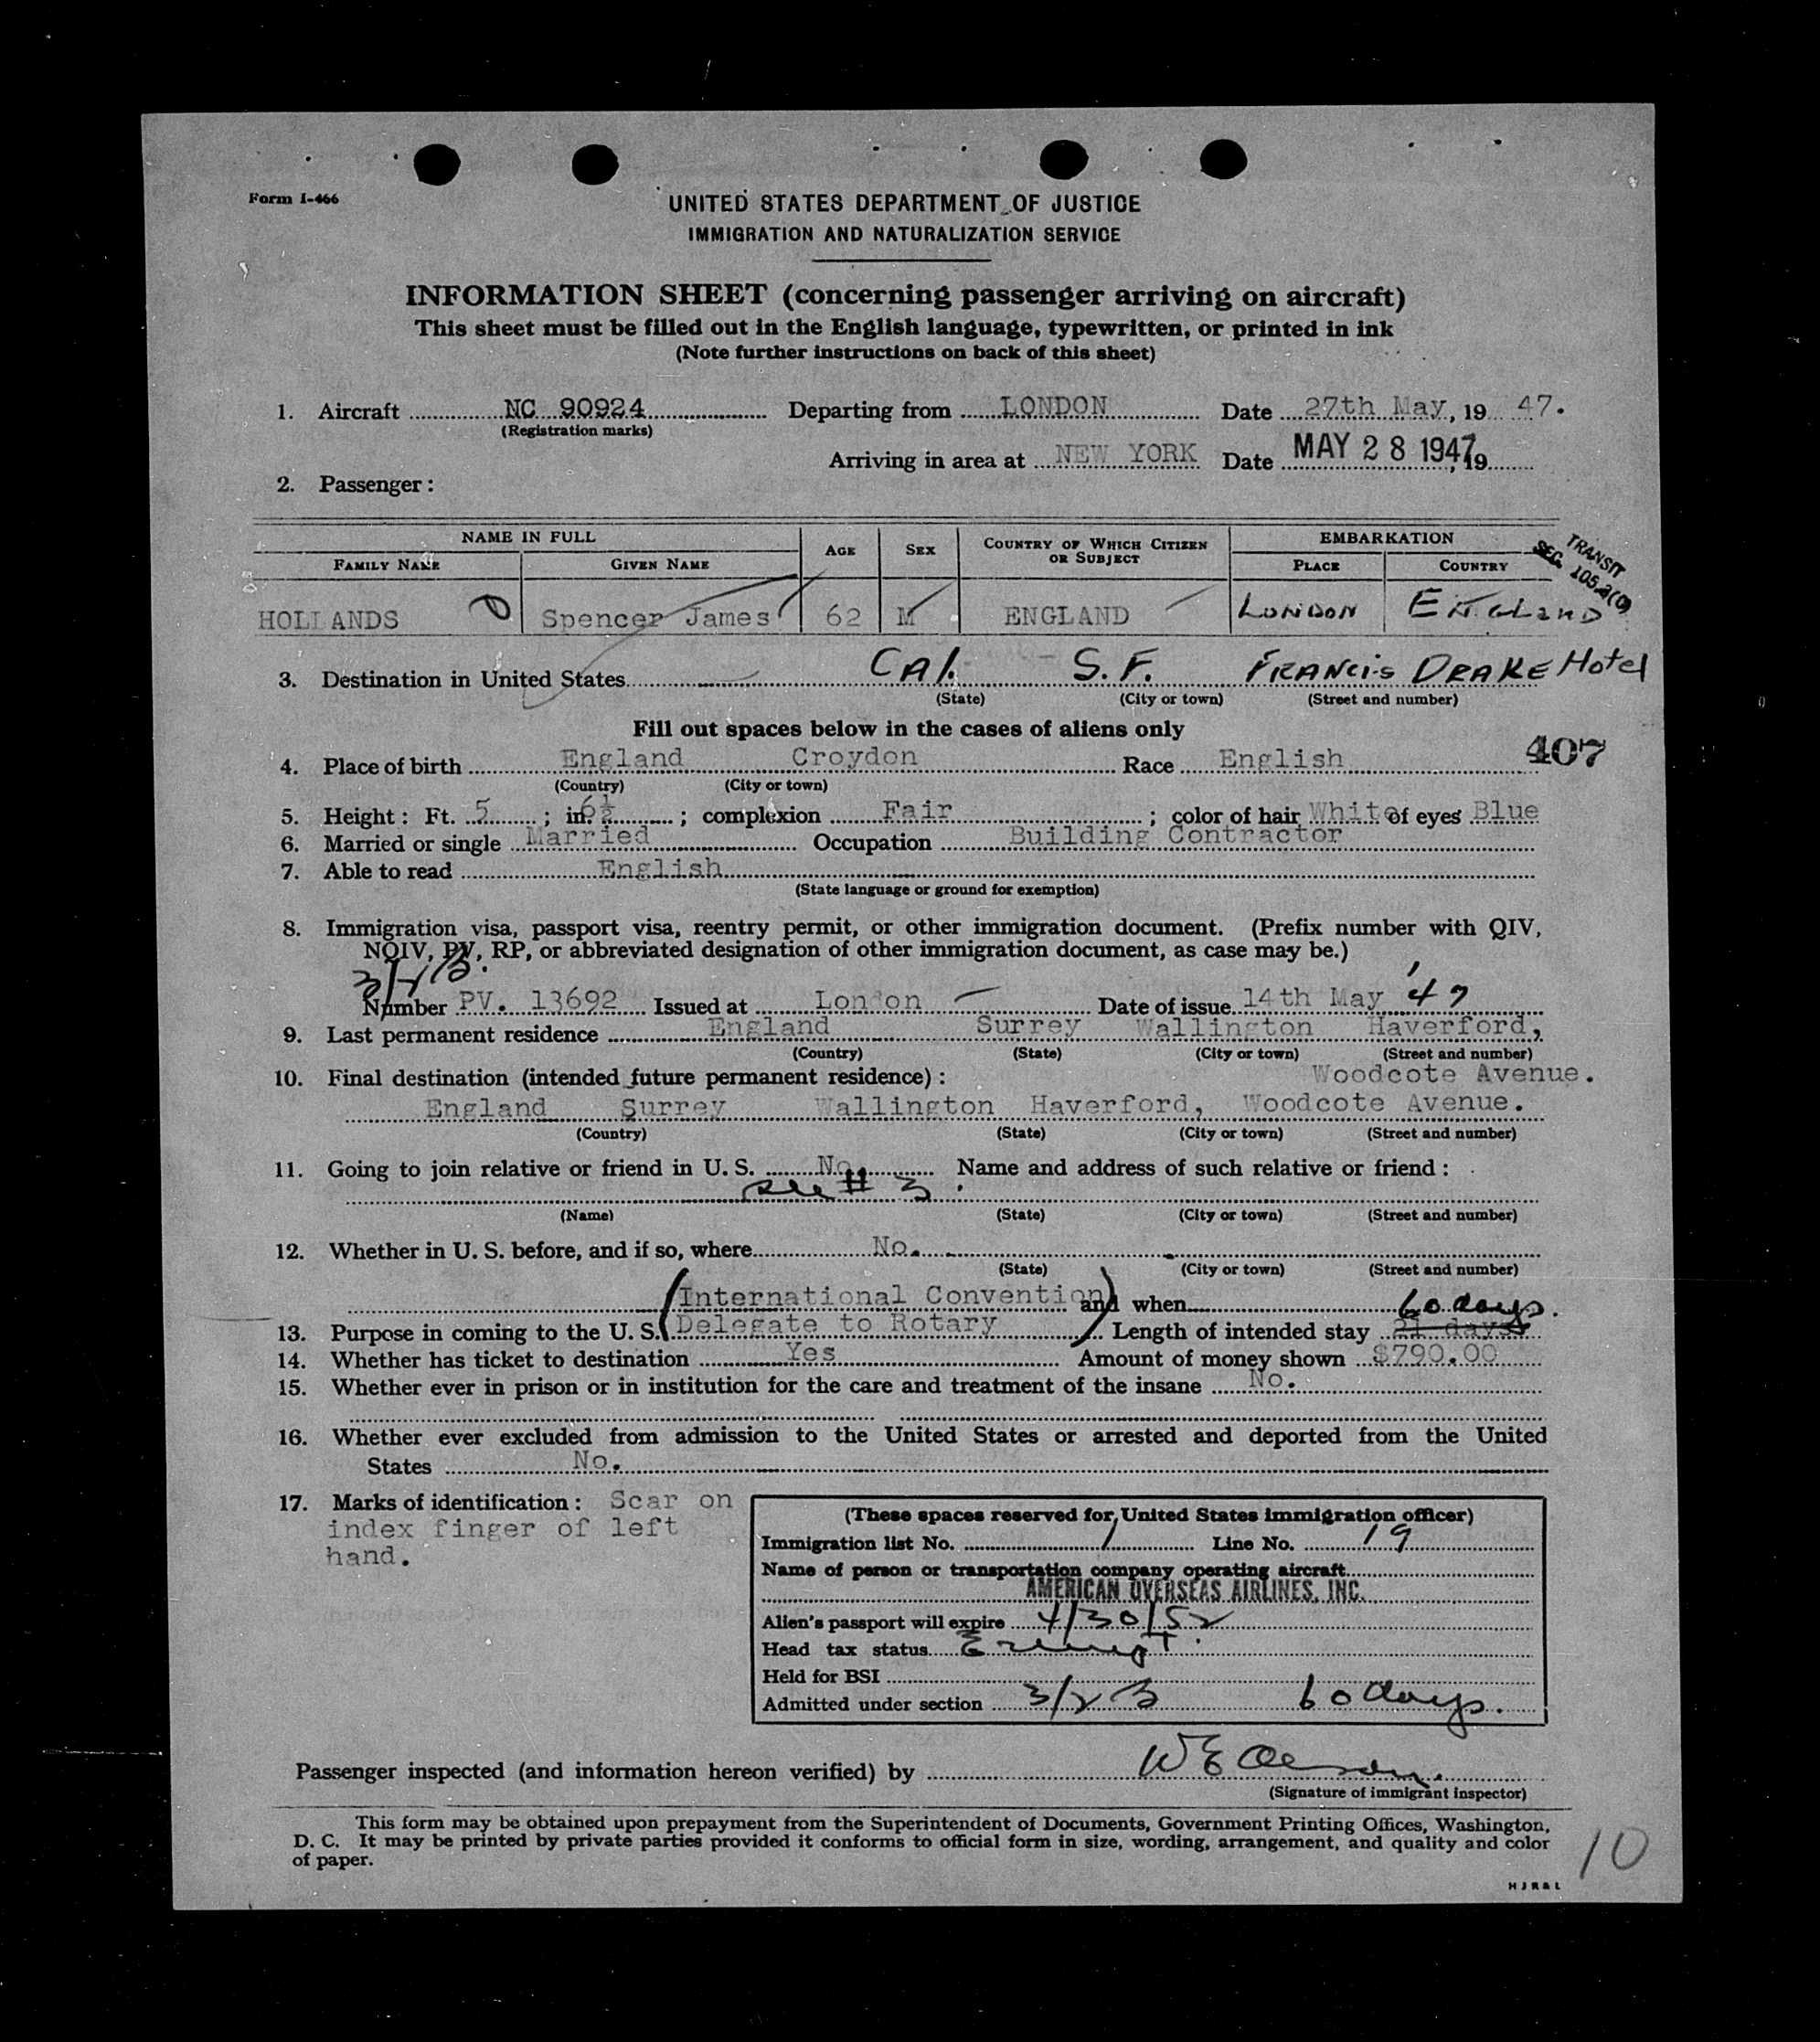 Form I-466
UNITED STATES DEPARTMENT OF JUSTICE
IMMIGRATION AND NATURALIZATION SERVICE
INFORMATION SHEET (concerning passenger arriving on aircraft)
This sheet must be filled out in the English language, typewritten, or printed in ink
(Note further instructions on back of this sheet)
1. Aircraft NC 90924 Departing from LONDON Date 27th May, 19 47.
(Registration marks)
Arriving in area at NEW YORK Date MAY 28 1947, 19
2. Passenger:
NAME IN FULL AGE SEX COUNTRY OF WHICH CITIZEN OR SUBJECT EMBARKATION
FAMILY NAME GIVEN NAME PLACE COUNTRY
TRANSIT
SEC. 105.3(0)
HOLLANDS Spencer James 62 M ENGLAND LONDON ENGLAND
3. Destination in United States CAl. S.F. FRANCIS DRAKE Hotel
(State) (City or town) (Street and number)
Fill out spaces below in the cases of aliens only
407
4. Place of birth England Croydon Race English
(Country) (City or town)
5. Height: Ft. 5 ; in. 6½ ; complexion Fair ; color of hair White of eyes Blue
6. Married or single Married Occupation Building Contractor
7. Able to read English
(State language or ground for exemption)
8. Immigration visa, passport visa, reentry permit, or other immigration document. (Prefix number with QIV,
NQIV, PV, RP, or abbreviated designation of other immigration document, as case may be.)
Number PV. 13692 Issued at London Date of issue 14th May '47
9. Last permanent residence England Surrey Wallington Haverford,
(Country) (State) (City or town) (Street and number)
10. Final destination (intended future permanent residence): Woodcote Avenue.
England Surrey Wallington Haverford, Woodcote Avenue.
(Country) (State) (City or town) (Street and number)
11. Going to join relative or friend in U. S. No. Name and address of such relative or friend:
see # 3.
(Name) (State) (City or town) (Street and number)
12. Whether in U. S. before, and if so, where No.
(State) (City or town) (Street and number)
(International Convention) and when 60 days.
13. Purpose in coming to the U. S. Delegate to Rotary Length of intended stay 21 days
14. Whether has ticket to destination Yes Amount of money shown $790.00
15. Whether ever in prison or in institution for the care and treatment of the insane No.
16. Whether ever excluded from admission to the United States or arrested and deported from the United
States No.
17. Marks of identification: Scar on
index finger of left
hand.
(These spaces reserved for United States immigration officer)
Immigration list No. 1 Line No. 19
Name of person or transportation company operating aircraft
AMERICAN OVERSEAS AIRLINES, INC.
Alien's passport will expire 4/30/52
Head tax status Exempt.
Held for BSI
Admitted under section 3/2 B 60 days.
Passenger inspected (and information hereon verified) by
(Signature of immigrant inspector)
This form may be obtained upon prepayment from the Superintendent of Documents, Government Printing Offices, Washington,
D. C. It may be printed by private parties provided it conforms to official form in size, wording, arrangement, and quality and color
of paper.
10
H J R & L